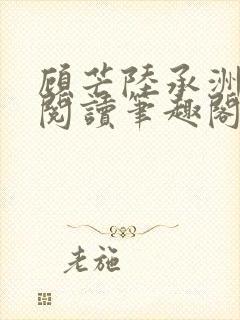 顧芒陸承洲
閱讀筆趣閣
老施